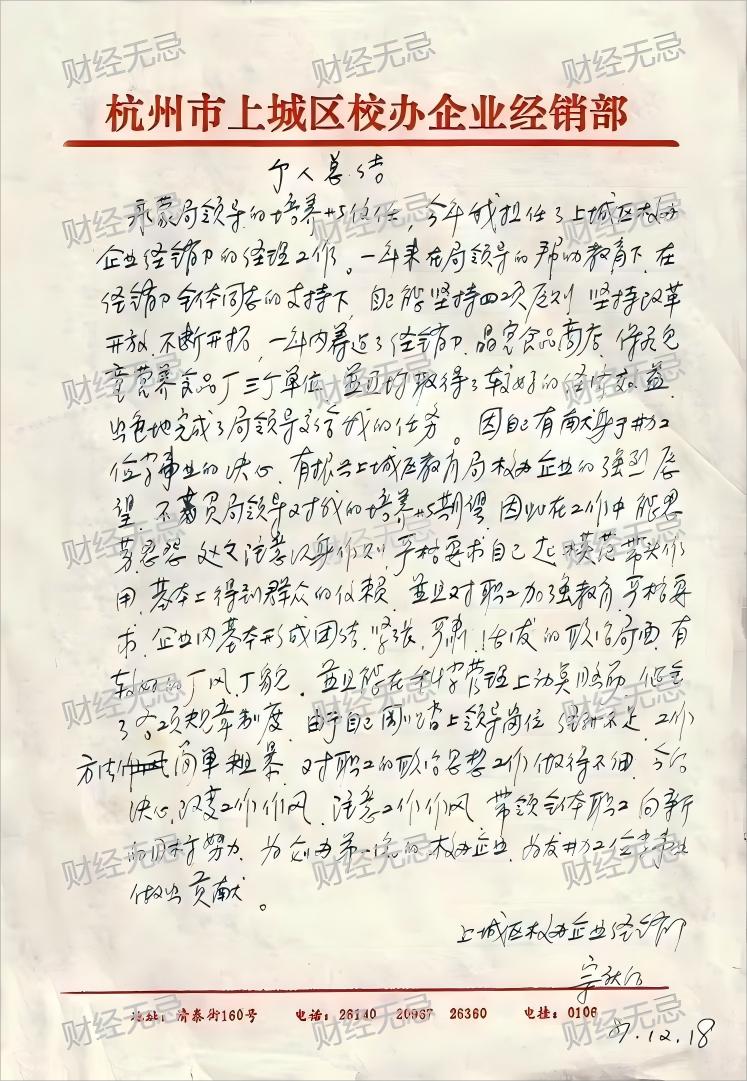 杭州市上城区校办企业经销部
个人总结
承蒙局领导的培养与信任,今年我担任了上城区校办
企业经销部的经理工作。一年来在局领导的帮助教育下,在
经销部全体同志的支持下,自己能坚持四项原则,坚持改革
开放,不断开拓,一年内筹建了经销部,晶晶食品商店,保灵儿
童营养食品厂三个单位,并且均取得了较好的经济效益,
出色地完成了局领导交给我的任务。因自己有献身于校办工
业事业的决心,有振兴上城区教育局校办企业的强烈愿
望,不辜负局领导对我的培养与期望,因此在工作中能任
劳任怨,处处注意以身作则,严格要求自己,起模范带头作
用,基本上得到群众的信赖,并且对职工加强教育,严格要
求,企业内基本形成团结、紧张、严肃、活泼的政治局面,有
较好的厂风、厂貌,并且能在科学管理上动真脑筋,健全
了各项规章制度。由于自己刚踏上领导岗位,经验不足,工作
方法简单粗暴,对职工的政治思想工作做得不细,今后
决心改变工作作风,注意工作作风,带领全体职工向新
的目标努力,为创办第一流的校办企业,为
做出贡献。
上城区校办企业经销部
宗庆后
地址:清泰街160号 电话:26140 20967 26360 电挂:0106
87.12.18
财经无忌